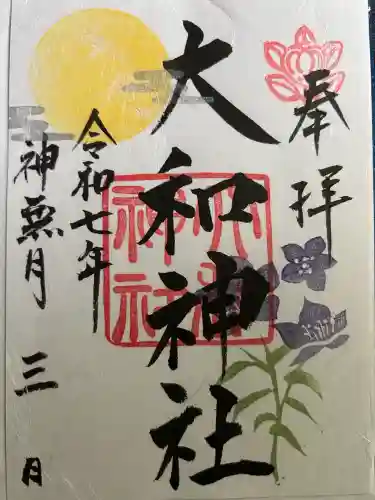 奉拝
大和神社
令和七年
神無月 三日
大和神社